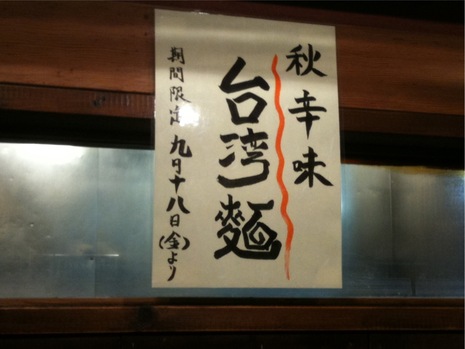 秋辛味
台湾麺
期間限定 九月十八日(金)より